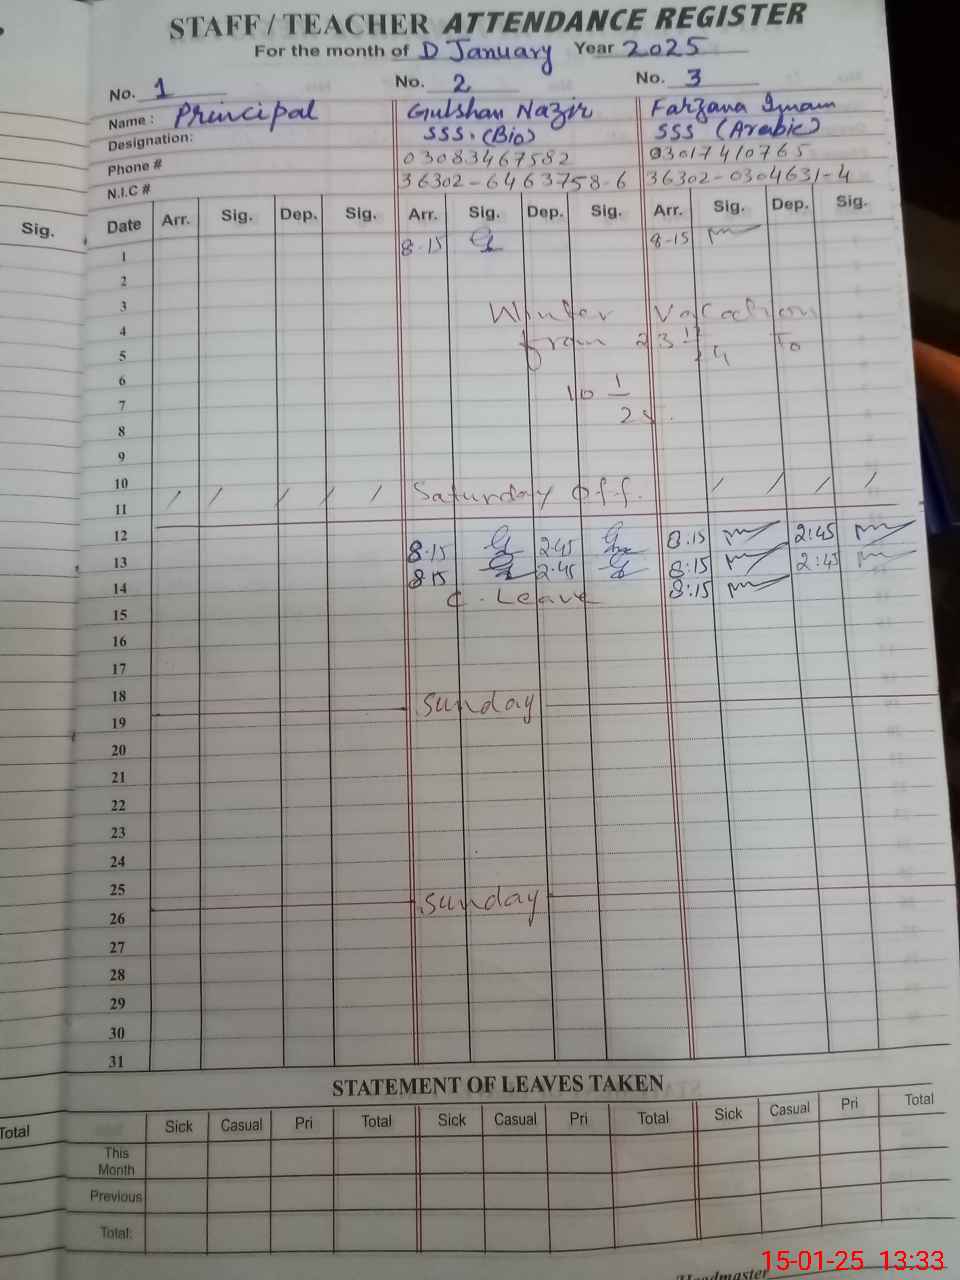 STAFF / TEACHER ATTENDANCE REGISTER
For the month of D January Year 2025
No. 1 No. 2 No. 3
Name : Principal Gulshan Nazir Farzana Imam
Designation: SSS. (Bio) SSS (Arabic)
Phone # 03083467582 03017410765
N.I.C # 36302-6463758-6 36302-0304631-4
Sig. Date Arr. Sig. Dep. Sig. Arr. Sig. Dep. Sig. Arr. Sig. Dep. Sig.
1 8-15 8-15
2
3 Winter Vacation
4 from 23 To
5
6
7 10 1
8 25.
9
10
11 / / / / / Saturday off. / / / /
12
13 8-15 2:45 8:15 2:45
14 815 2:45 8:15 2:45
15 C. Leave 8:15
16
17
18
19 Sunday
20
21
22
23
24
25
26 Sunday
27
28
29
30
31
STATEMENT OF LEAVES TAKEN
Total Sick Casual Pri Total Sick Casual Pri Total Sick Casual Pri Total
This
Month
Previous
Total:
Headmaster
15-01-25 13:33